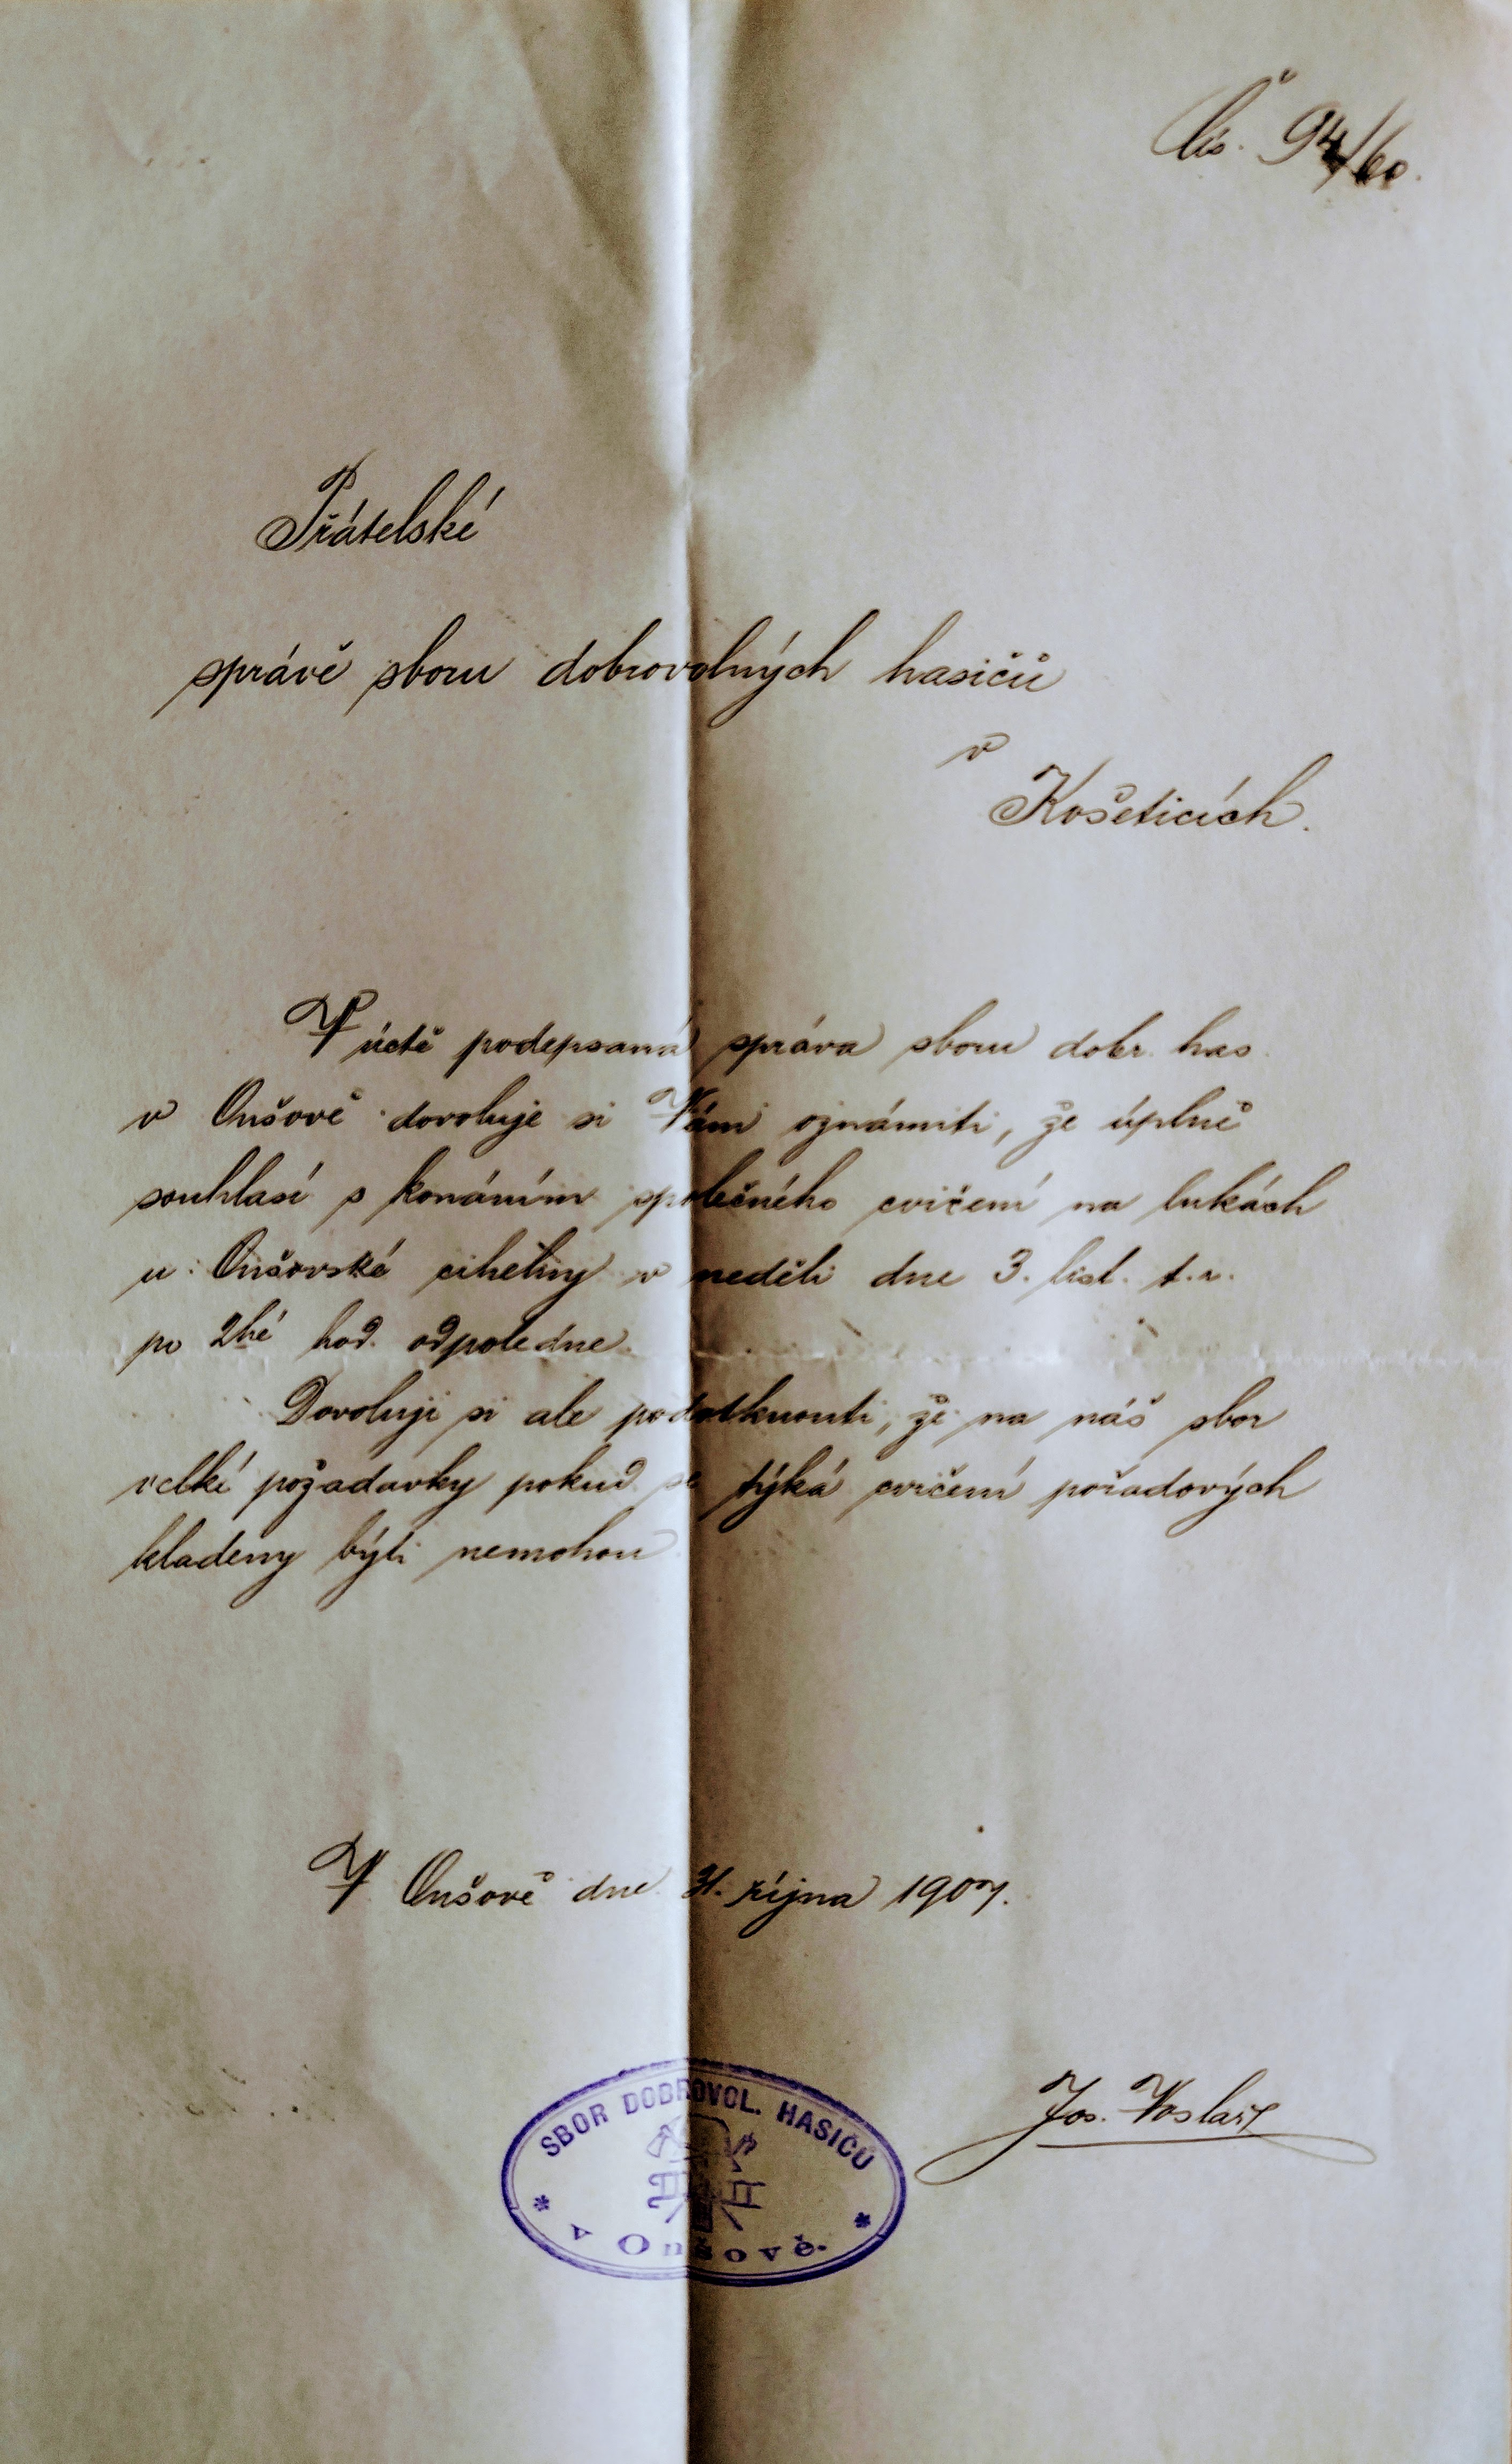 Čís. 94/60.
Přátelské
správě sboru dobrovolných hasičů
v
Košeticích.
V úctě podepsaná správa sboru dobr. has.
v Onšově dovoluje si Vám oznámiti, že úplně
souhlasí s konáním společného cvičení na lukách
u Onšovské cihelny v neděli dne 3. list. t.r.
po 2hé hod. odpoledne.
Dovoluji si ale podotknouti, že na náš sbor
velké požadavky pokud se týká cvičení pořadových
kladeny býti nemohou
V Onšově dne 31. října 1907.
Jos. Voslář
SBOR DOBROVOL. HASIČŮ
* v Onšově. *